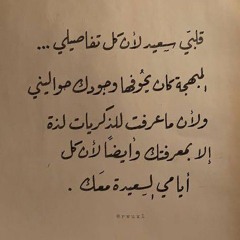 قلبي سعيد لأن كل تفاصيلي ...
المبهجة كان يحُوفها وجودك حواليني
ولأن ما عرفت للذكريات لذة
إلا بمعرفتك وأيضًا لأن كل
أيامي السعيدة معَك .